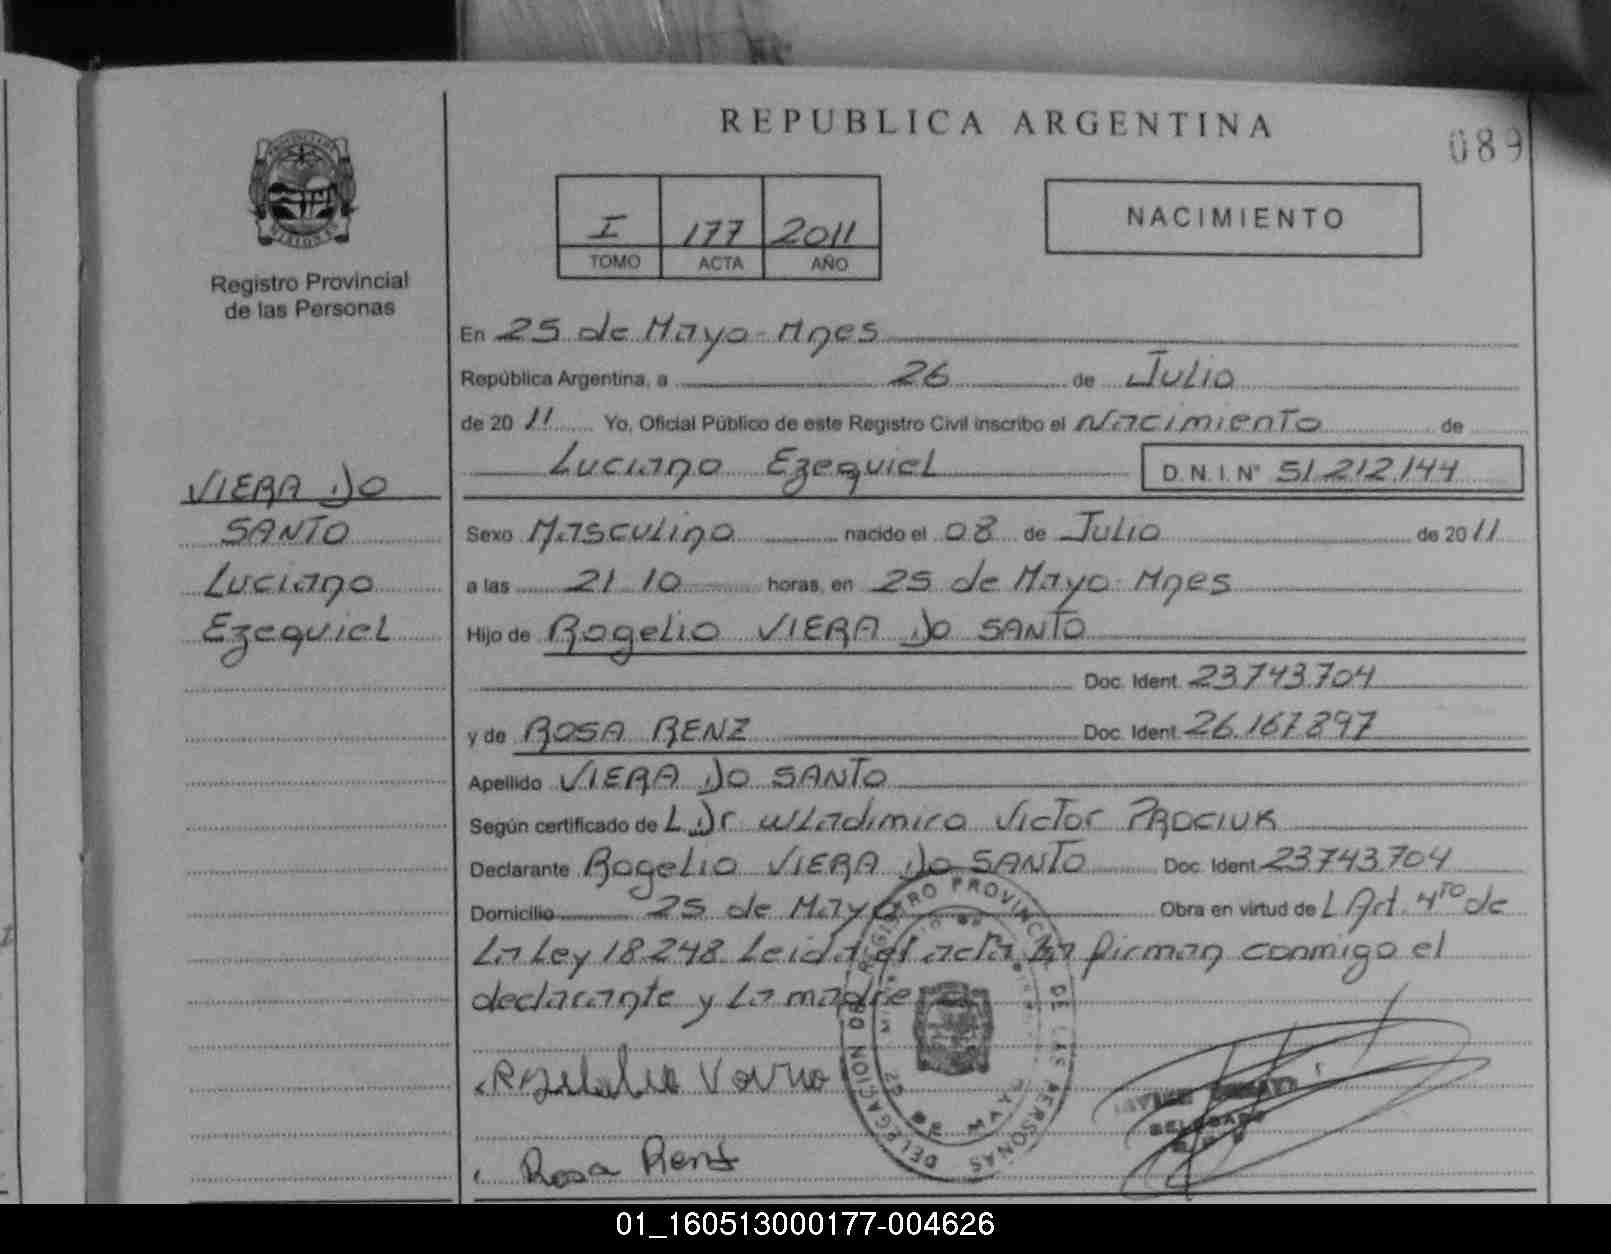 REPUBLICA ARGENTINA
089
I 177 2011
TOMO ACTA AÑO
NACIMIENTO
MISIONES
Registro Provincial
de las Personas
En 25 de Mayo-Mnes
República Argentina, a 26 de Julio
de 2011 Yo, Oficial Público de este Registro Civil inscribo el Nacimiento de
Luciano Ezequiel D.N.I.Nº 51.212.144
VIERA DO
SANTO
Luciano
Ezequiel
Sexo Masculino nacido el 08 de Julio de 2011
a las 21.10 horas, en 25 de Mayo-Mnes
Hijo de Rogelio VIERA DO SANTO
Doc. Ident. 23.743.704
y de ROSA RENZ Doc. Ident. 26.167.897
Apellido VIERA DO SANTO
Según certificado de L Dr Wladimiro Victor PROCIUK
Declarante Rogelio VIERA DO SANTO Doc. Ident. 23.743.704
Domicilio 25 de Mayo Obra en virtud de L Art. 4TO de
La Ley 18.248. Leida el acta La firman conmigo el
declarante y La madre
DELEGACION DEL REGISTRO PROVINCIAL DE LAS PERSONAS
25 DE MAYO
Rosa Renz
01_160513000177-004626